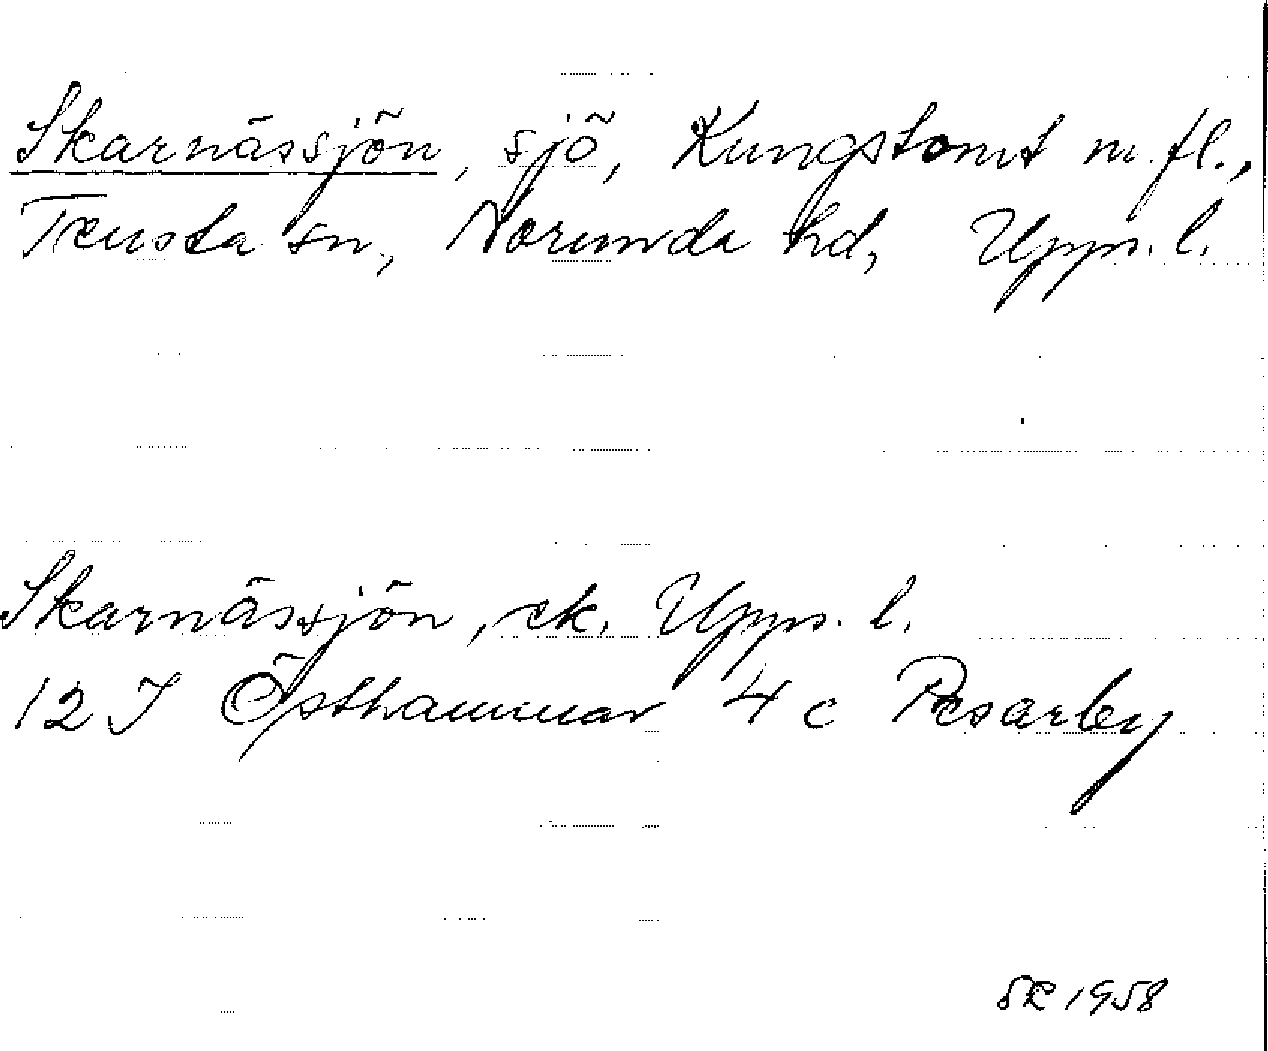 Skarnässjön, sjö, Kungstomt m.fl.,
Tensta sn, Norunda hd, Upps. l.
Skarnässjön, ek. Upps. l.
12 I Östhammar 4 c Pesarby
SR 1958